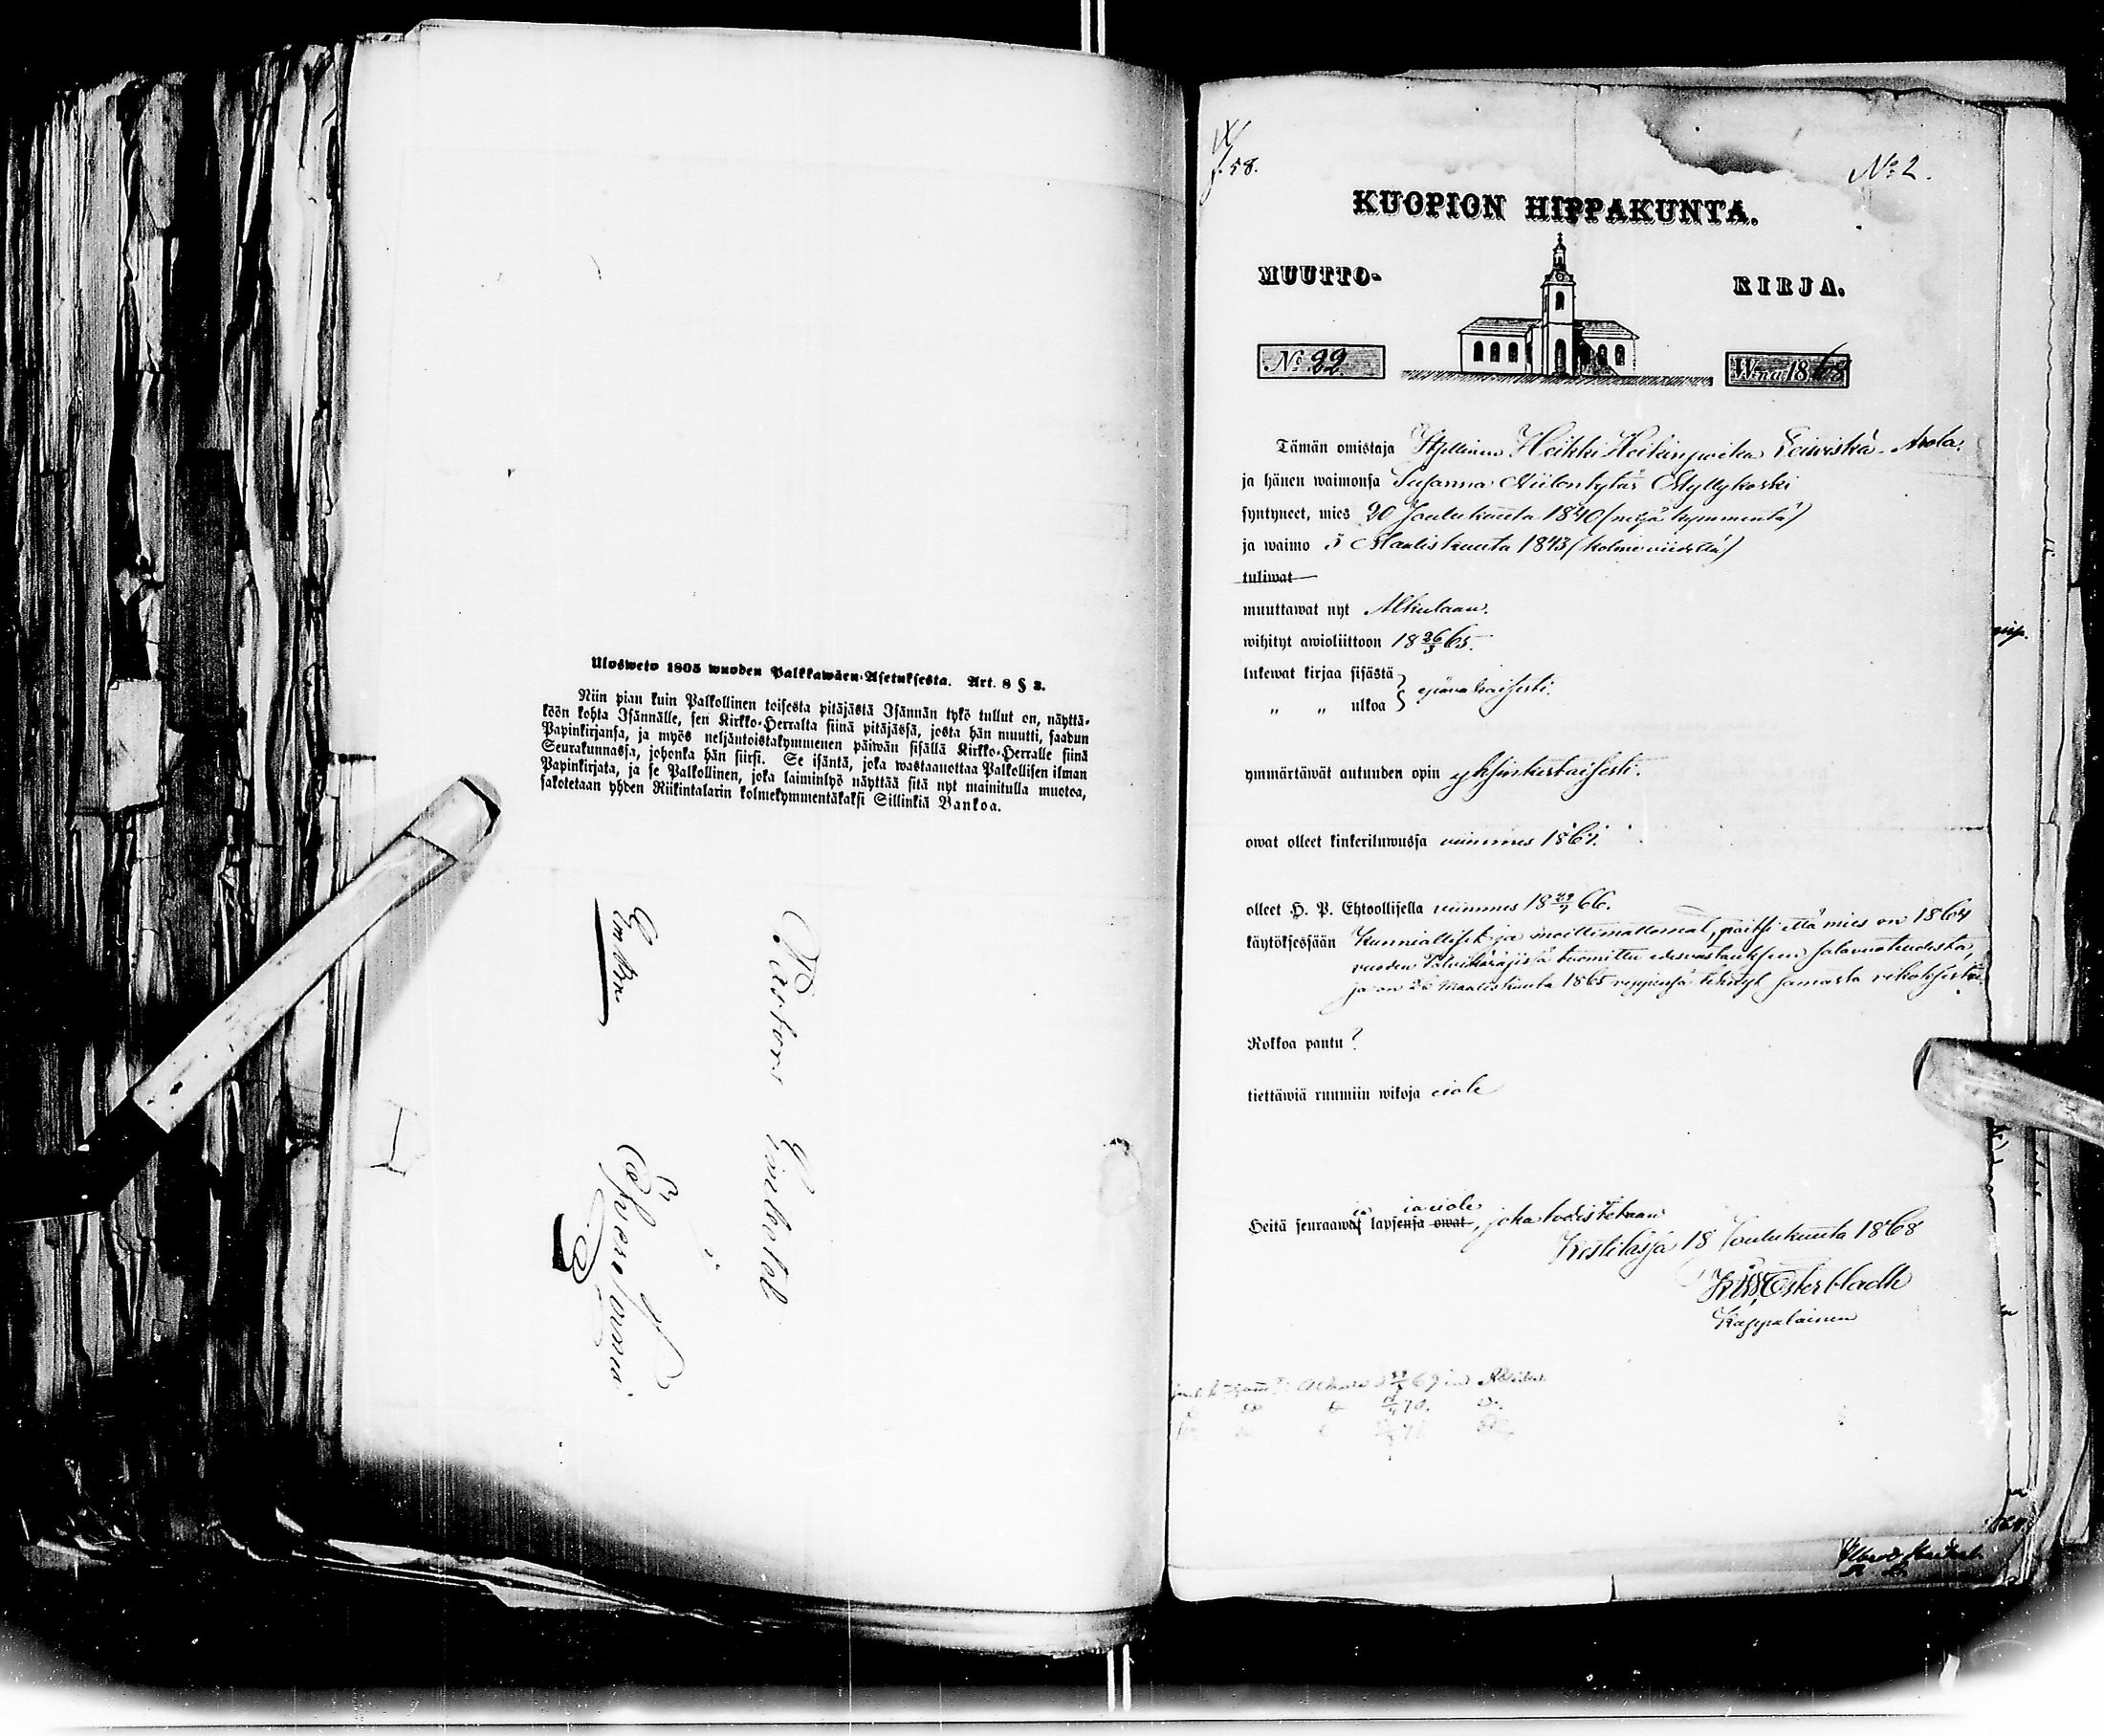 Ulosweto 1805 wuoden Palkkawäen-Asetuksesta. Art. 8 § 2.
Niin pian kuin Palkollinen toisesta pitäjästä Isännän tykö tullut on, näyttä-
köön kohta Isännälle, sen Kirkko-Herralta siinä pitäjässä, josta hän muutti, saadun
Papinkirjansa, ja myös neljäntoistakymmenen päiwän sisällä Kirkko-Herralle siinä
Seurakunnassa, johonka hän siirsi. Se isäntä, joka wastaanottaa Palkollisen ilman
Papinkirjata, ja se Palkollinen, joka laiminlyö näyttää sitä nyt mainitulla muotoa,
sakotetaan yhden Riikintalarin kolmekymmentäkaksi Sillinkiä Bankoa.
Pastors Embetet
i
f. 58.
No 2.
KUOPION HIPPAKUNTA.
MUUTTO- KIRJA.
No 22.
W:na 1868
Tämän omistaja Heikki Heikinpoika Leiviskä Arola.
ja hänen waimonsa Susanna Niilontytär Myllykoski
syntyneet, mies 20 Joulukuuta 1840 (neljä kymmentä)
ja waimo 5 Maaliskuuta 1843 (kolme viidettä)
tuliwat
muuttawat nyt
wihityt awioliittoon 18 26/3 65.
lukewat kirjaa sisästä
„ „ ulkoa } epävakaisesti.
ymmärtäwät autuuden opin yksinkertaisesti.
owat olleet kinkeriluwussa viimmes 1867.
olleet H. P. Ehtoollisella viimmes 18 66.
käytöksessään Kunnialliset ja moittimattomat, paitsi että mies on 1864
vuoden Talvikäräjissä tuomittu edesvastaukseen salavuoteudesta,
ja on 26 Maaliskuuta 1865 rippinsä tehnyt samasta rikoksesta.
Rokkoa pantu?
tiettäwiä ruumiin wikoja eiole
Heitä seuraawia lapsia eiole, joka todistetaan
Kestilässä 18 Joulukuuta 1868
Österbladh
Kappalainen